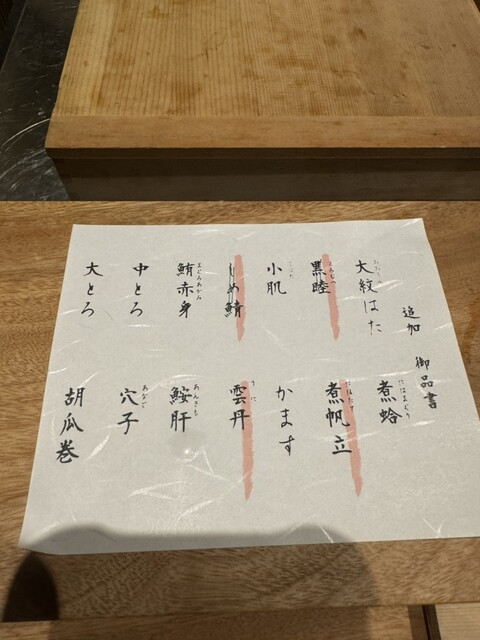 追加 御品書
大紋はた
黒睦
小肌
しめ鯖
鮪赤身
中とろ
大とろ
煮蛤
煮帆立
かます
雲丹
鮟肝
穴子
胡瓜巻